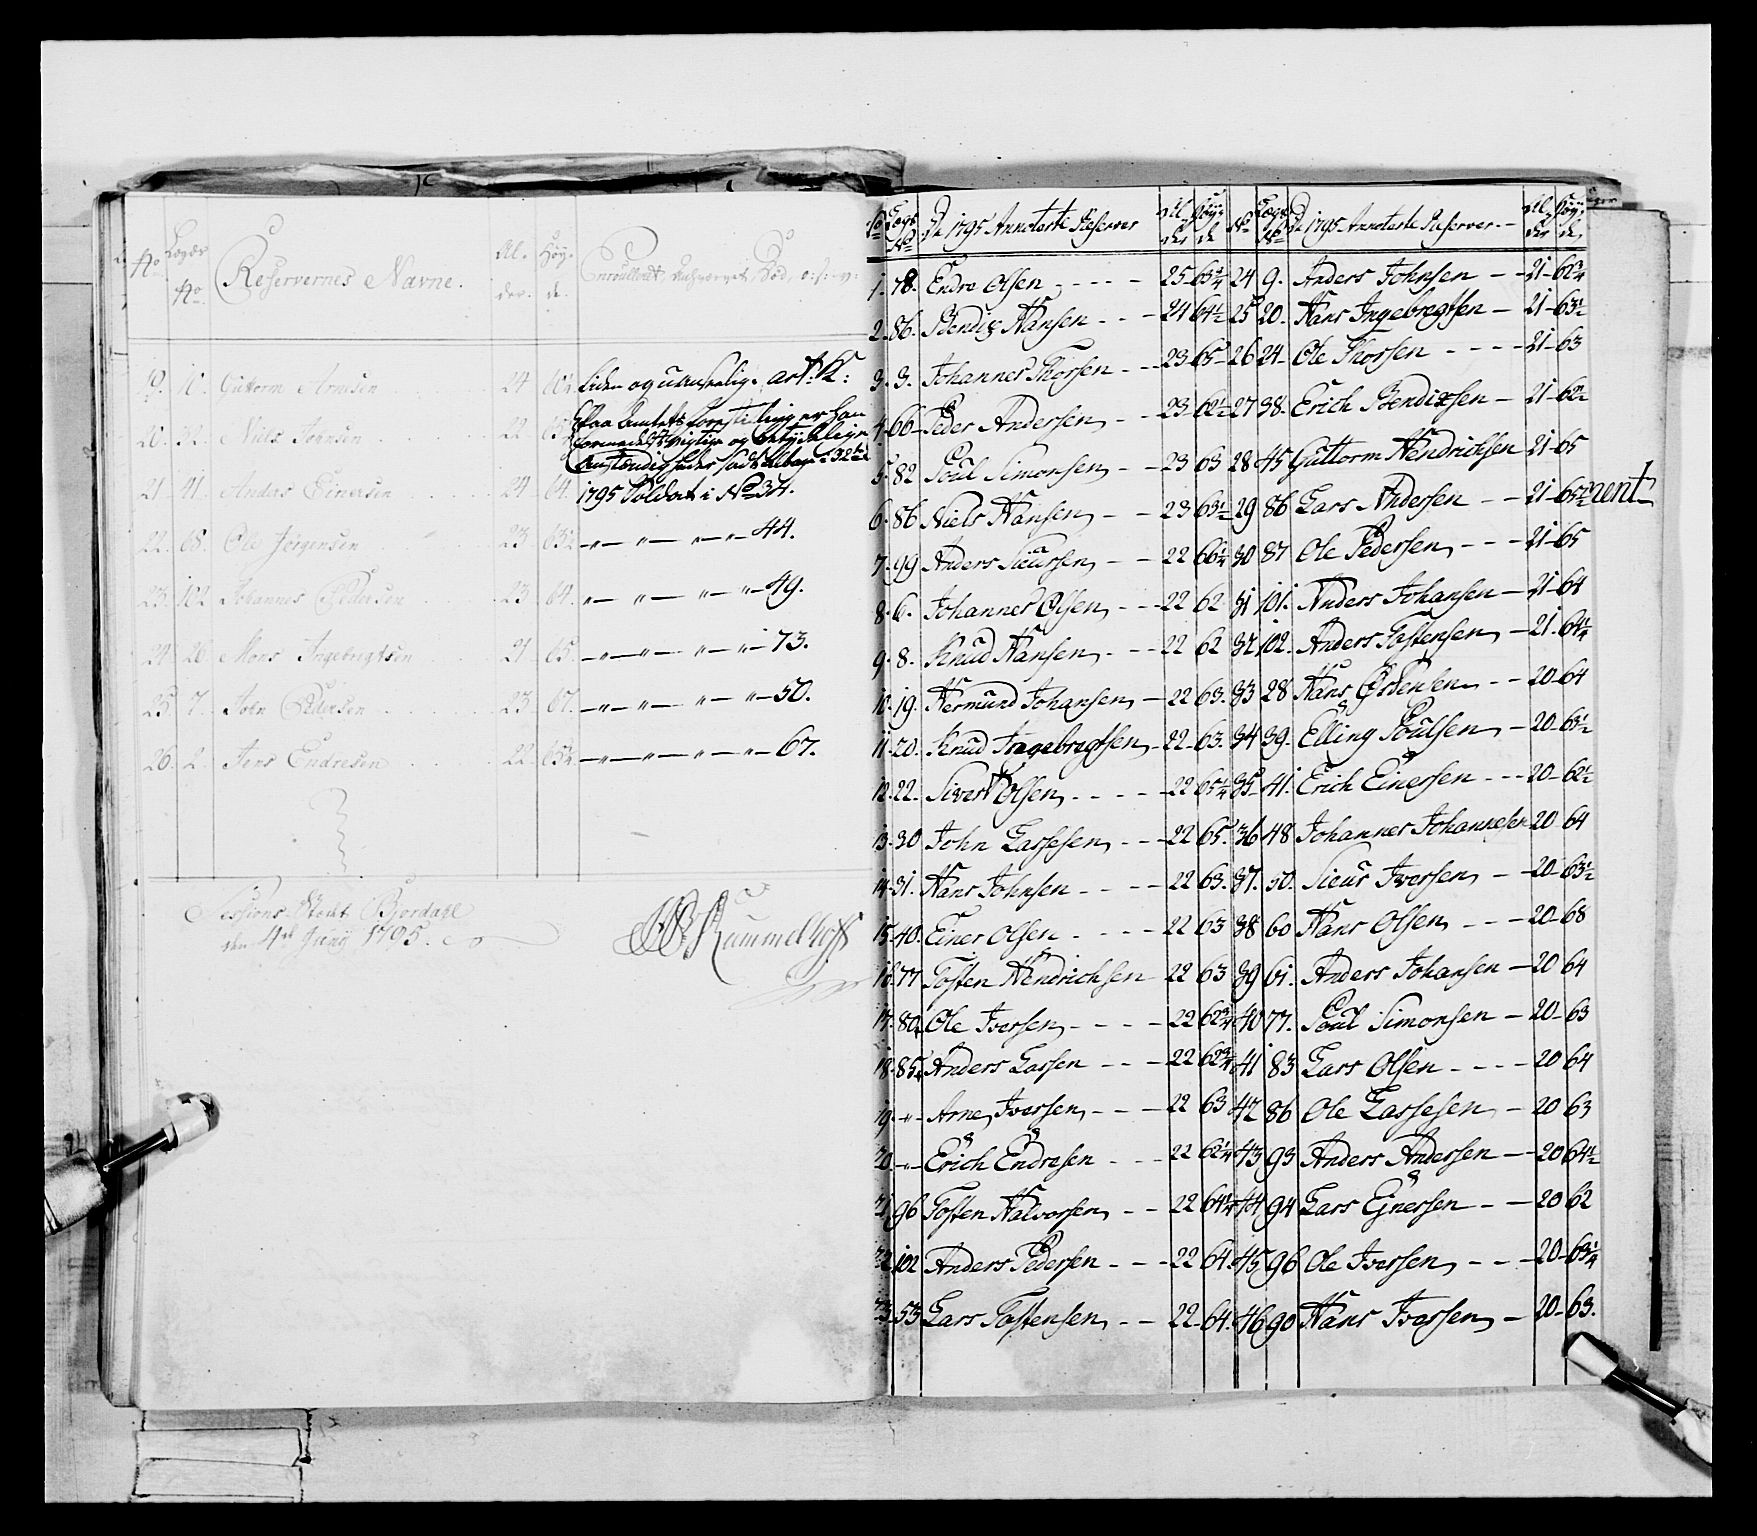 No Lægds No. Reservernes Navne. Al- der. Høy- de.
19. 10. Guttorm Arnesen 24
Liden og uanseelig. art: K:
20. 32. Niels Johnsen 22
Paa Amtets forestilling er han
formedelst vigtige og betydelige
Omstændigheder
21 41. Anders Einersen 24 64.
1795 Soldat i No 34.
22. 68. Ole Jørgensen 23 63½
—"— "— "— "— 44.
23. 102 Johannes Pedersen 23 64.
"— "— "— "— 49.
24 26 Mons Ingebrigtsen 21 65.
—"— "— "— "— 73.
25. 7. John Pedersen 23 67.
—"— "— "— "— 50.
26. 2. Jens Endresen 22
—"— "— "— "— 67.
Sessions Stædet Bjordahl
den 4de Junij 1795.
Rummelhoff
No Lægds No De 1795 Annoterte Reserver Al- der Høy- de
1. 78. Endre Olsen 25 63¼
2. 86. Bendix Hansen 24 64½
3. 3. Johannes Thorsen 23 65
4. 66 Peder Andersen 23 62½
5. 82 Poul Simonsen 23 63
6. 86 Niels Hansen 23 63½
7. 99 Anders Siursen 22 66¼
8. 6. Johannes Olsen 22 62
9. 8. Knud Hansen 22 62
10. 19. Hermund Johansen 22 63.
11. 20. Knud Ingebregtsen 22 63.
12. 22. Sivert Olsen 22 65¼
13. 30 John Lassesen 22 65.
14. 31. Hans Johnsen 22 63.
15. 40. Einer Olsen 22 63
16. 77 Tosten Hendrichsen 22 63
17. 80. Ole Iversen 22 62¾
18. 85. Anders Larsen 22 62¾
19. " Arne Iversen 22 63
20. " Erich Endresen 22 62¼
21. 96 Tosten Halvorsen 22 64¼
22. 102 Anders Pedersen 22 64.
23. 53 Lars Tostensen 22 64.
No Lægds No De 1795 Annoterte Reserver Al- der Høy- de
24 9. Anders Johnsen 21 62¾
25 20. Hans Ingebregtsen 21 63½
26 24. Ole Thorsen 21 63
27 38. Erich Bendixsen 21 62½
28 45 Guttorm Hendrichsen 21 65
29 86 Lars Andersen 21 65½
30 87 Ole Pedersen 21 65
31 101. Anders Johansen 21 64
32 102. Anders Tostensen 21 64¼
33 28 Hans 20 64
34 39. Elling Poulsen 20 63½
35. 41. Erich Einersen 20 62½
36 48 Johannes Johannesen 20 64
37. 50. Sieur Iversen 20 63½
38 60 Hans Olsen 20 68
39 61. Anders Johansen 20 64
40 77. Poul Simonsen 20 63
41 83 Lars Olsen 20 64
42 86 Ole Lassesen 20 63
43 93 Anders Andersen 20 64½
44 94 Lars Ejnersen 20 62
45 96 Ole Iversen 20 63¼
46 90 Hans Iversen 20 63.
ment